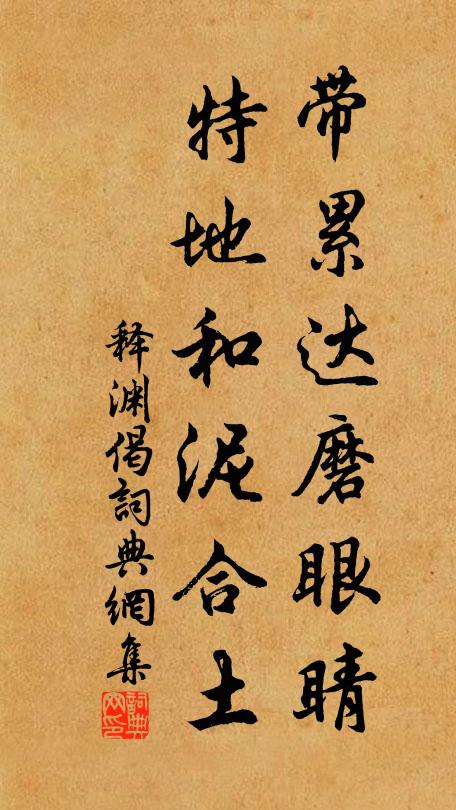 带累达磨眼睛
特地和泥合土
释渊偈詞典網集
詞典
网印